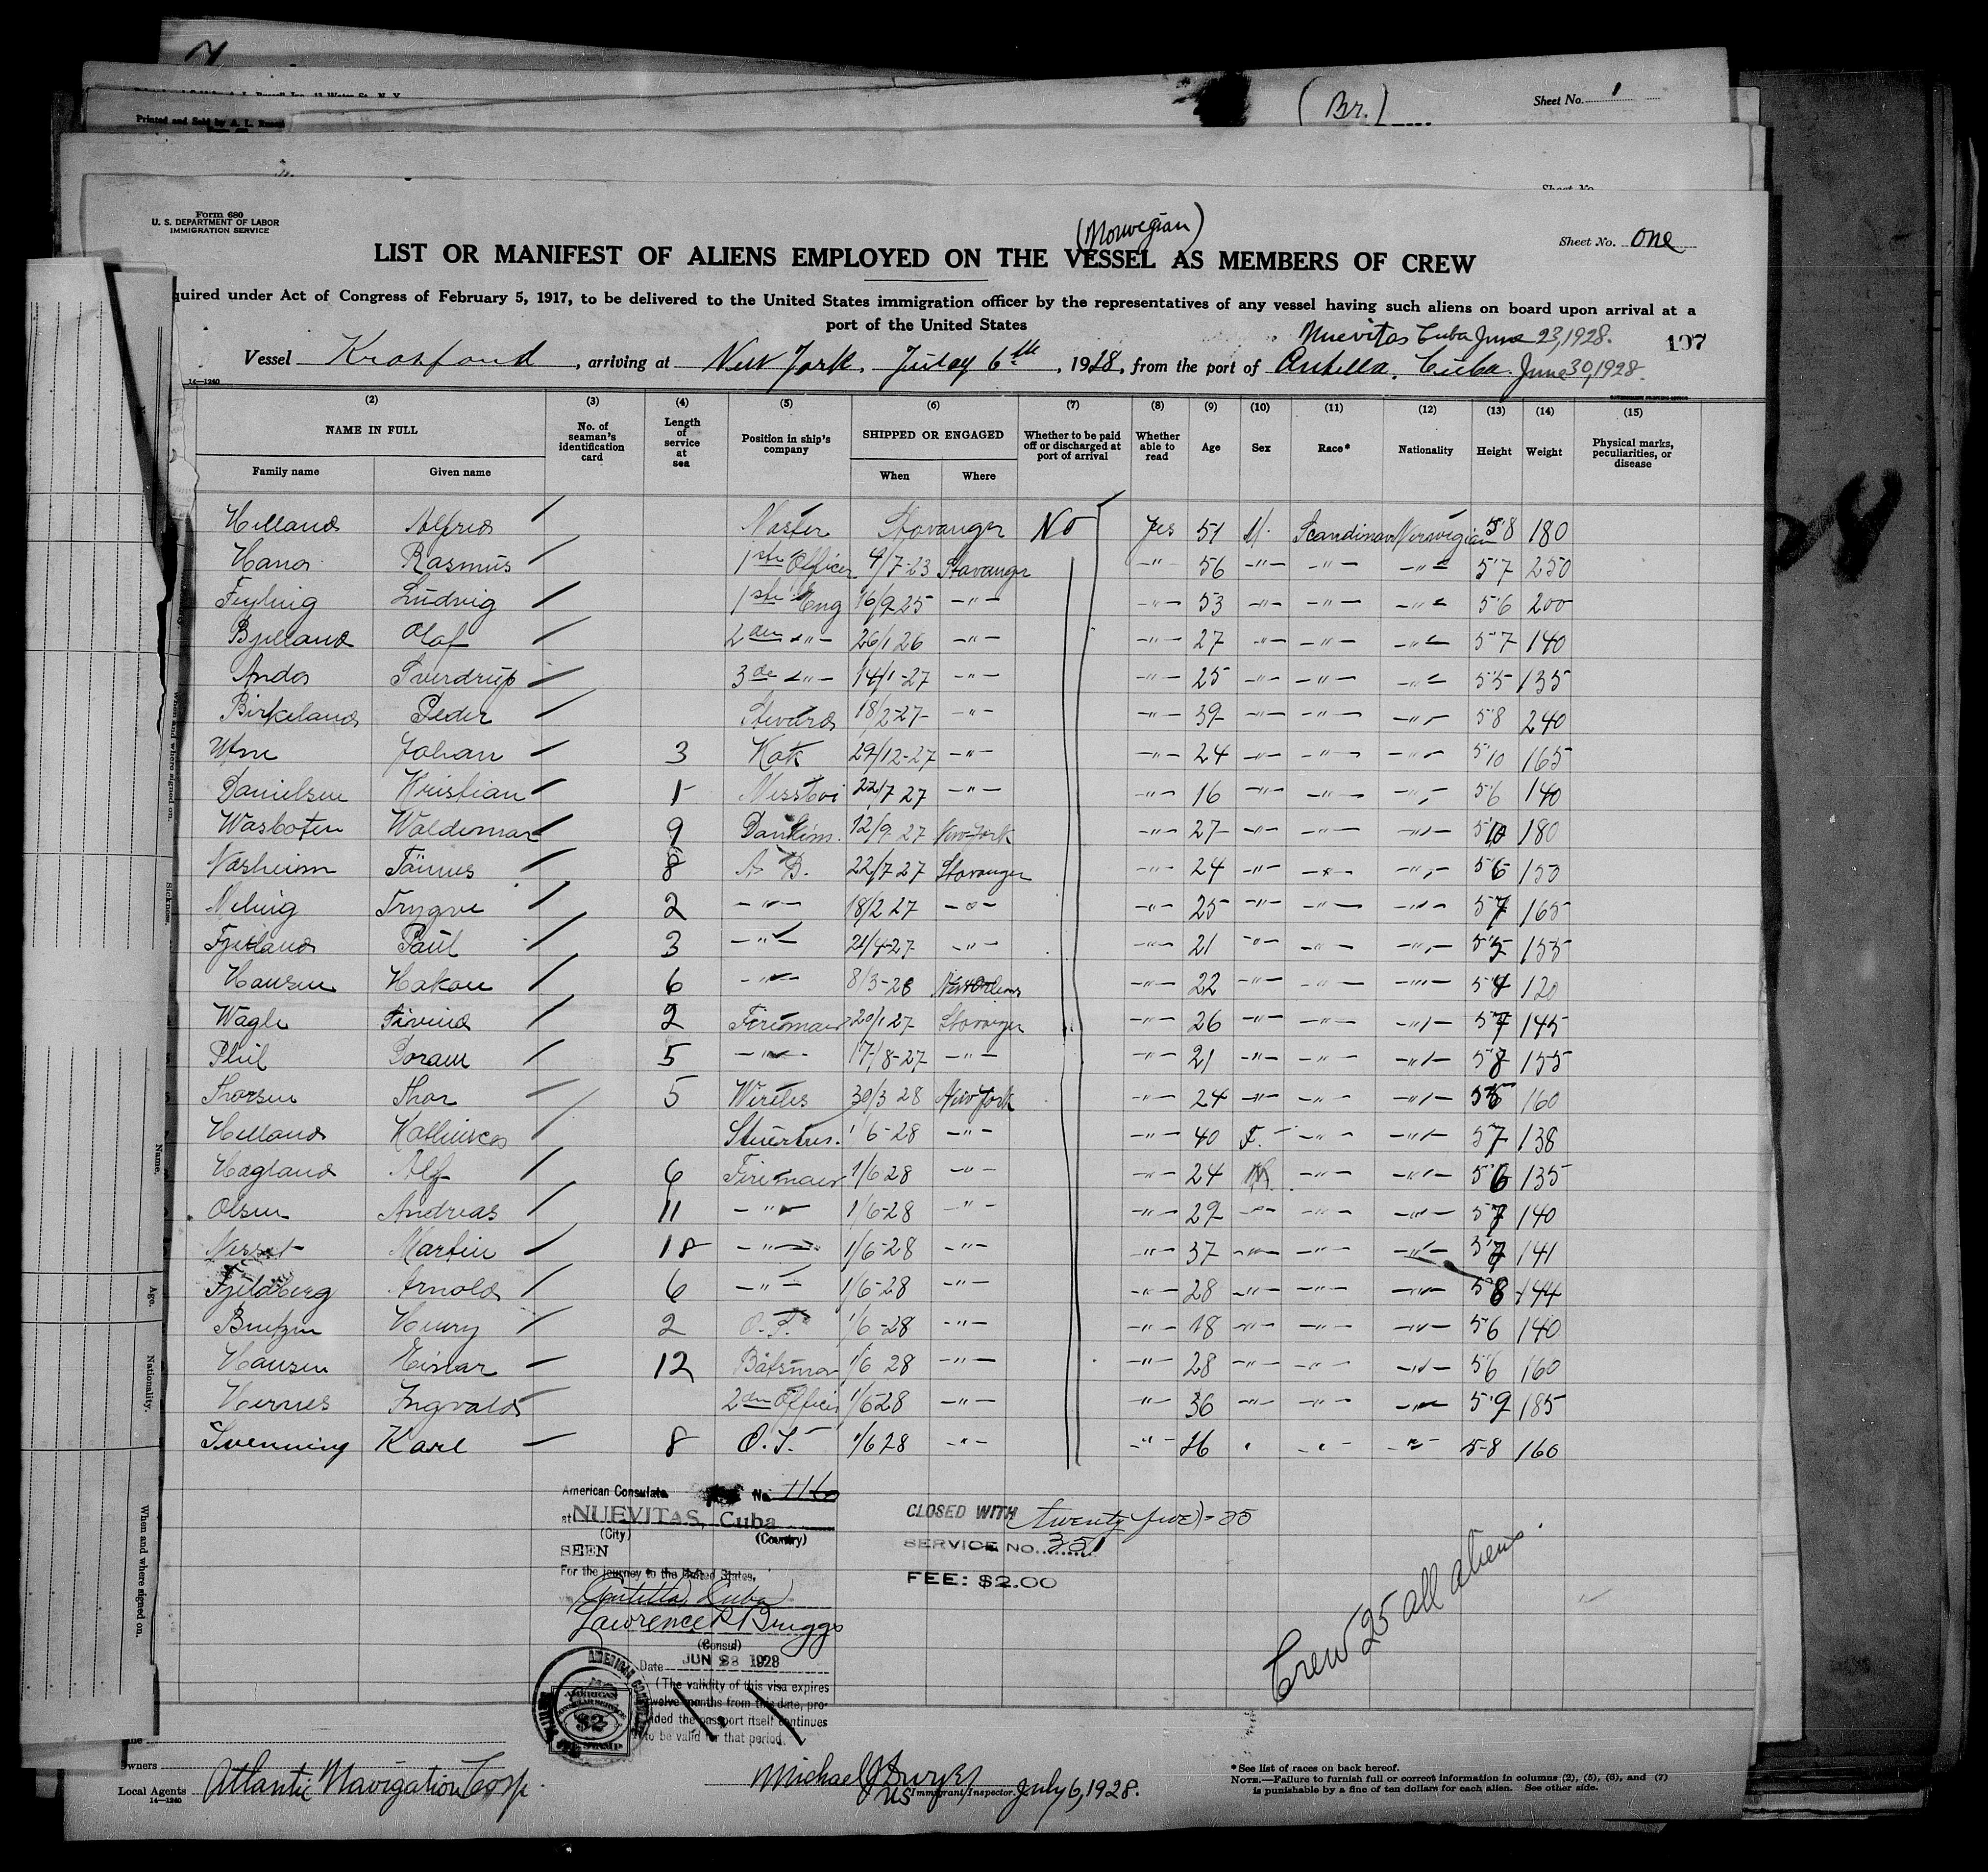 Printed and Sold by A. L. Russell
(Br.)
Sheet No. 1
Form 680
U. S. DEPARTMENT OF LABOR
IMMIGRATION SERVICE
(Norwegian)
Sheet No. One
LIST OR MANIFEST OF ALIENS EMPLOYED ON THE VESSEL AS MEMBERS OF CREW
quired under Act of Congress of February 5, 1917, to be delivered to the United States immigration officer by the representatives of any vessel having such aliens on board upon arrival at a
port of the United States
Nuevitas Cuba June 23, 1928.
107
Vessel Krosfond, arriving at New York, July 6th, 1928, from the port of Antilla, Cuba. June 30, 1928.
14—1240
(2) (3) (4) (5) (6) (7) (8) (9) (10) (11) (12) (13) (14) (15)
NAME IN FULL No. of seaman's identification card Length of service at sea Position in ship's company SHIPPED OR ENGAGED Whether to be paid off or discharged at port of arrival Whether able to read Age Sex Race* Nationality Height Weight Physical marks, peculiarities, or disease
Family name Given name When Where
Helland Alfred Master Stavanger No Yes 51 M. Scandinav Norwegian 5'8 180
Rasmus 1ste Officer 4/7-23 Stavanger -"- 56 -"- -"- -"- 5'7 250
Ludvig 1ste Eng 16/9 25 -"- -"- 53 -"- -"- -"- 5'6 200
Bjelland Olaf 2den -"- 26/1 26 -"- -"- 27 -"- -"- -"- 5'7 140
Anda Sverdrup 3de -"- 14/1-27 -"- -"- 25 -"- -"- -"- 5'5 135
Birkeland Peder Steward 18/2-27 -"- -"- 39 -"- -"- -"- 5'8 240
Johan 3 Kok 29/12-27 -"- -"- 24 -"- -"- -"- 5'10 165
Danielsen Kristian 1 Messboi 22/7 27 -"- -"- 16 -"- -"- -"- 5'6 140
Wasboten Waldemar 9 Donkim. 12/9 27 New York -"- 27 -"- -"- -"- 5'10 180
8 A. B. 22/7 27 Stavanger -"- 24 -"- -"- -"- 5'6 150
Meling Trygve 2 -"- 18/2 27 -"- -"- 25 -"- -"- -"- 5'7 165
Paul 3 -"- 21/4-27 -"- -"- 21 -"- -"- -"- 5'5 155
Hansen Hakon 6 -"- 8/3-28 New Orleans -"- 22 -"- -"- -"- 5'4 120
Wagle Eivind 2 Fireman 20/1 27 Stavanger -"- 26 -"- -"- -"- 5'7 145
Goram 5 -"- 17/8-27 -"- -"- 21 -"- -"- -"- 5'8 155
Thorsen Thor 5 Wireles 30/3 28 New York -"- 24 -"- -"- -"- 160
Helland 1/6-28 -"- -"- 40 F. -"- -"- 5'7 138
Hagland Alf 6 Fireman 1/6 28 -"- -"- 24 M. -"- -"- 5'6 135
Olsen Andreas 11 -"- 1/6-28 -"- -"- 29 -"- -"- -"- 5'7 140
Martin 18 -"- 1/6-28 -"- -"- 37 -"- -"- -"- 5'7 141
Fjeldberg Arnold 6 -"- 1/6-28 -"- -"- 28 -"- -"- -"- 5'8 144
Henry 2 O.S. 1/6-28 -"- -"- 18 -"- -"- -"- 5'6 140
Hansen Einar 12 Båtsman 1/6 28 -"- -"- 28 -"- -"- -"- 5'6 160
Hernes Ingvald 2den Officer 1/6-28 -"- -"- 36 -"- -"- -"- 5'9 185
Svenning Karl 8 O.S. 1/6 28 -"- -"- 26 " -"- -"- 5-8 160
American Consulate No. 116
at NUEVITAS, Cuba
(City) (Country)
SEEN
For the journey to the United States,
Antilla, Cuba
Lawrence R Briggs
(Consul)
Date JUN 23 1928
(The validity of this visa expires
twelve months from this date, pro-
vided the passport itself continues
to be valid for that period.
CLOSED WITH (twenty five)-25
SERVICE NO. 351
FEE: $2.00
Crew 25 all aliens
AMERICAN
$2
STAMP
Owners
Local Agents Atlantic Navigation Corp.
14—1240
Michael J Dwyer
US Immigrant Inspector. July 6, 1928.
*See list of races on back hereof.
NOTE.—Failure to furnish full or correct information in columns (2), (5), (6), and (7)
is punishable by a fine of ten dollars for each alien. See other side.
Sickness.
Name.
Age.
Nationality.
When and where signed on.